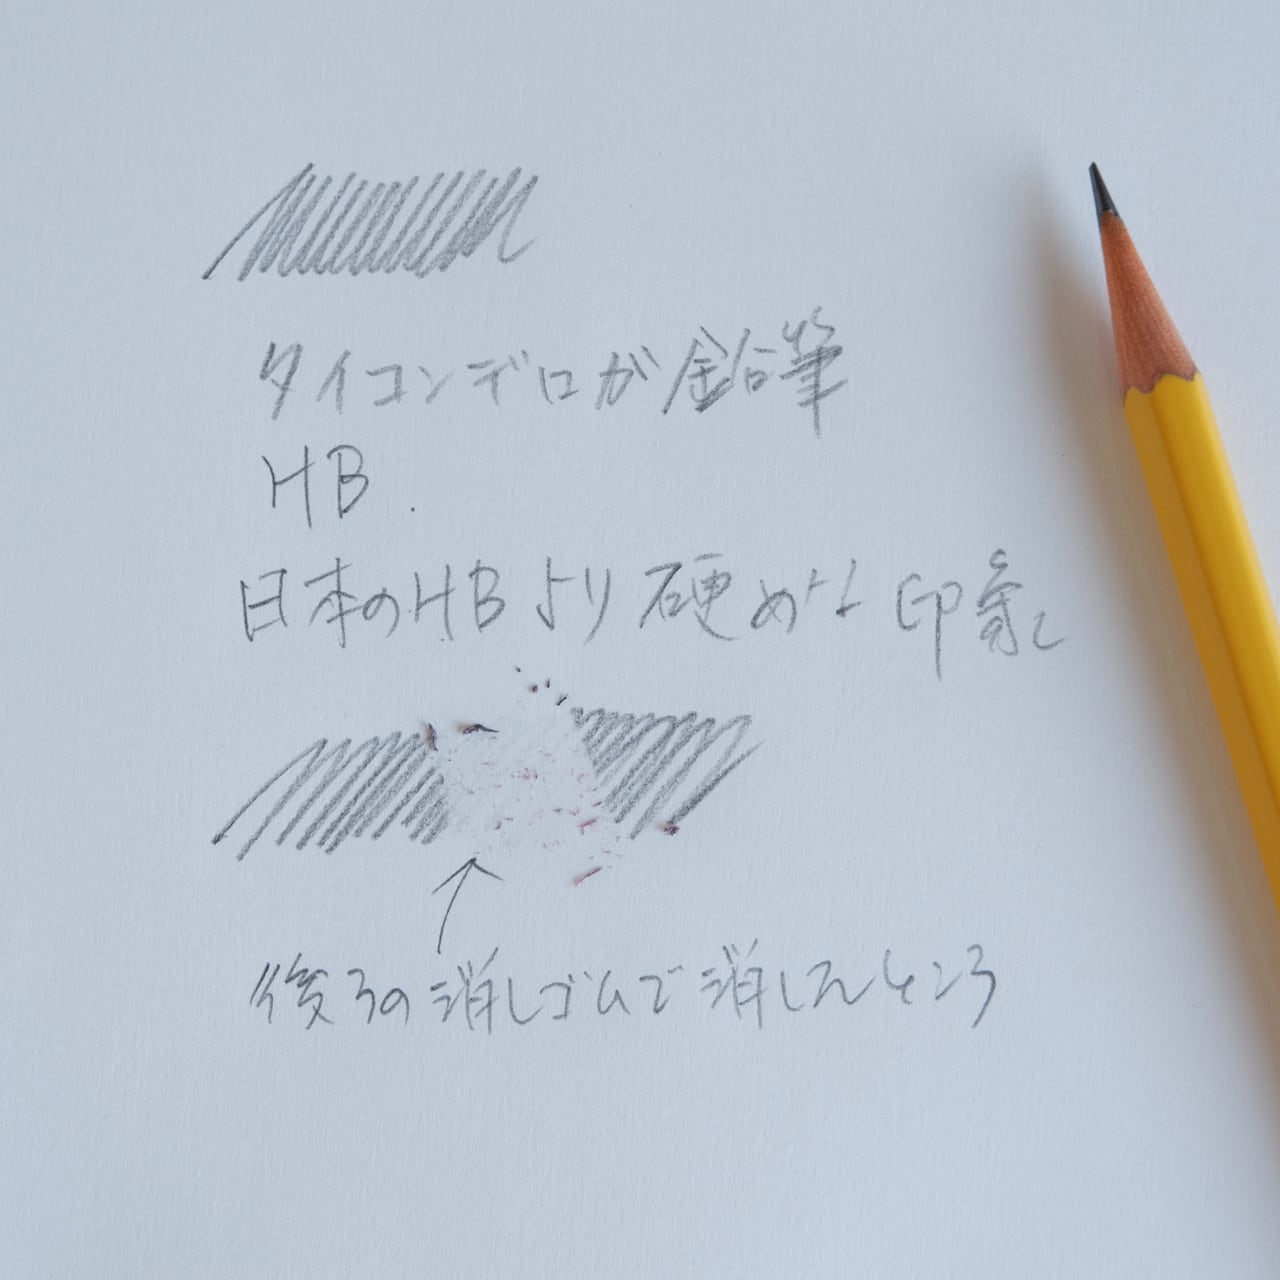 タイコンデロガ鉛筆
HB.
日本のHBより硬めな印象。
後ろの消しゴムで消したところ